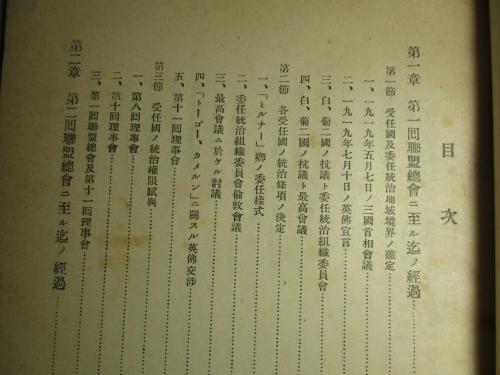 目次
第一章 第一回聯盟總會ニ至ル迄ノ經過
第一節 受任國及委任統治地域境界ノ確定
一、一九一九年五月七日ノ三國首相會議
二、一九一九年七月十日ノ英佛宣言
三、白、葡二國ノ抗議ト委任統治組織委員會
四、白、葡二國ノ抗議ト最高會議
第二節 各受任國ノ統治條項ノ決定
一、「ミルナー」卿ノ委任樣式
二、委任統治組織委員會倫敦會議
三、最高會議ニ於ケル討議
四、「トーゴー、カメルン」ニ關スル英佛交涉
五、第十一回理事會
第三節 受任國ノ統治權限賦與
一、第八回理事會
二、第十回理事會
三、第一回聯盟總會及第十一回理事會
第二章 第二回聯盟總會ニ至ル迄ノ經過